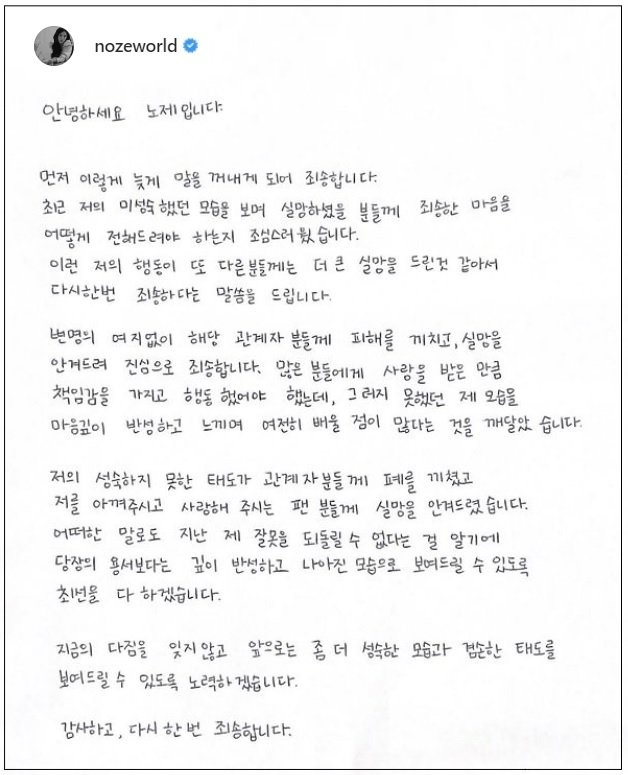 nozeworld
안녕하세요 노제입니다.
먼저 이렇게 늦게 말을 꺼내게 되어 죄송합니다.
최근 저의 미성숙했던 모습을 보며 실망하셨을 분들께 죄송한 마음을
어떻게 전해드려야 하는지 조심스러웠습니다.
이런 저의 행동이 또 다른분들께는 더 큰 실망을 드린것 같아서
다시한번 죄송하다는 말씀을 드립니다.
변명의 여지없이 해당 관계자 분들께 피해를 끼치고, 실망을
안겨드려 진심으로 죄송합니다. 많은 분들에게 사랑을 받은 만큼
책임감을 가지고 행동 했어야 했는데, 그러지 못했던 제 모습을
마음깊이 반성하고 느끼며 여전히 배울 점이 많다는 것을 깨달았 습니다.
저의 성숙하지 못한 태도가 관계자분들께 폐를 끼쳤고
저를 아껴주시고 사랑해 주시는 팬 분들께 실망을 안겨드렸습니다.
어떠한 말로도 지난 제 잘못을 되돌릴 수 없다는 걸 알기에
당장의 용서보다는 깊이 반성하고 나아진 모습으로 보여드릴 수 있도록
최선을 다 하겠습니다.
지금의 다짐을 잊지않고 앞으로는 좀 더 성숙한 모습과 겸손한 태도를
보여드릴 수 있도록 노력하겠습니다.
감사하고, 다시 한번 죄송합니다.